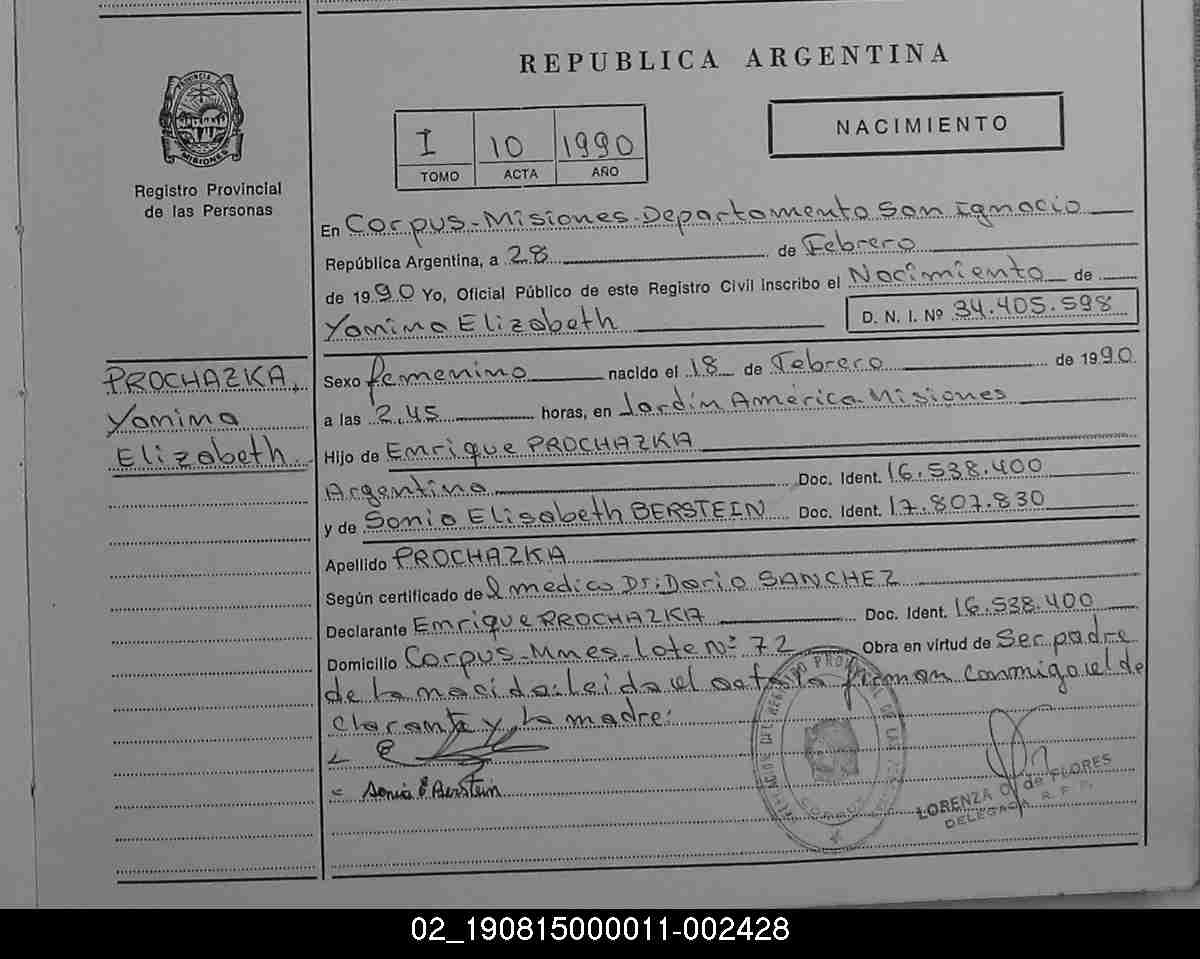 REPUBLICA ARGENTINA
PROVINCIA DE
MISIONES
Registro Provincial
de las Personas
I 10 1990
TOMO ACTA AÑO
NACIMIENTO
En Corpus-Misiones-Departamento San Ignacio
República Argentina, a 28 de Febrero
de 1990 Yo, Oficial Público de este Registro Civil inscribo el Nacimiento de
Yamina Elizabeth D. N. I. Nº 34.405.598
PROCHAZKA,
Yamina
Elizabeth
Sexo femenino nacido el 18 de Febrero de 1990
a las 2.45 horas, en Jardín América Misiones
Hijo de Enrique PROCHAZKA
Argentino Doc. Ident. 16.538.400
y de Sonia Elisabeth BERSTEIN Doc. Ident. 17.807.830
Apellido PROCHAZKA
Según certificado del medico Dr: Dario SANCHEZ
Declarante Enrique PROCHAZKA Doc. Ident. 16.538.400
Domicilio Corpus-Mnes-Lote Nº 72 Obra en virtud de Ser padre
de la nacida: leida el acta la firman conmigo el de
clarante y la madre:
Sonia E Berstein
CORPUS
LORENZA O. de FLORES
DELEGADA R. P. P.
02_190815000011-002428